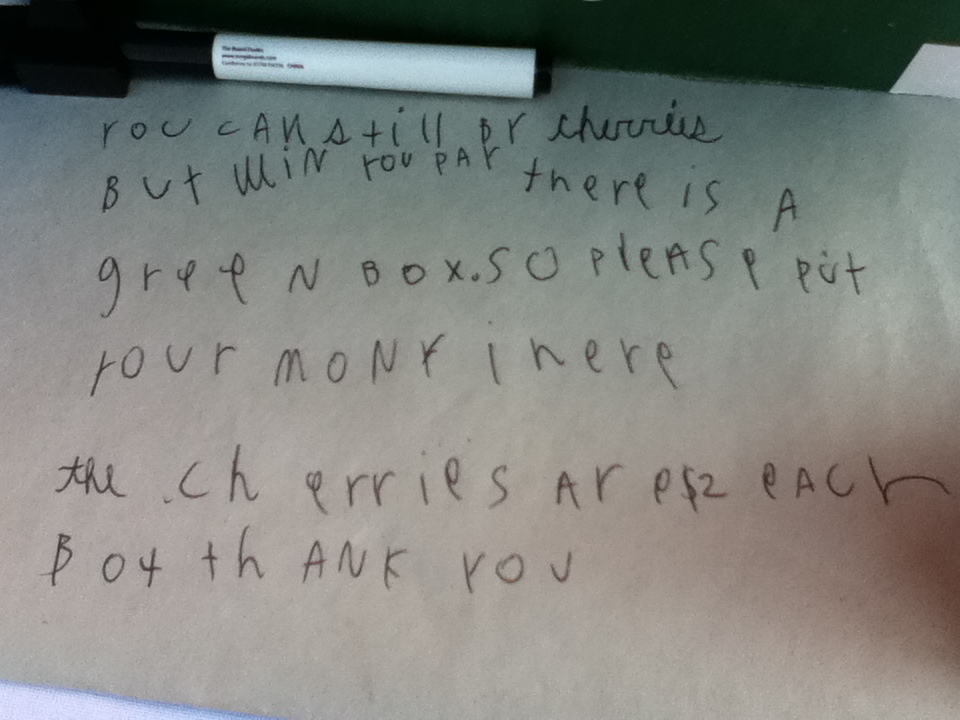 The Board Dudes
www.boarddudes.com
CHINA
YOU CAN still BY cherries
BUt WHIN YOU PAY there is A
greeN BOX. SO PleASe put
YOUr mONY in here
the cherries Are $2 eACh
Box thANK YOU